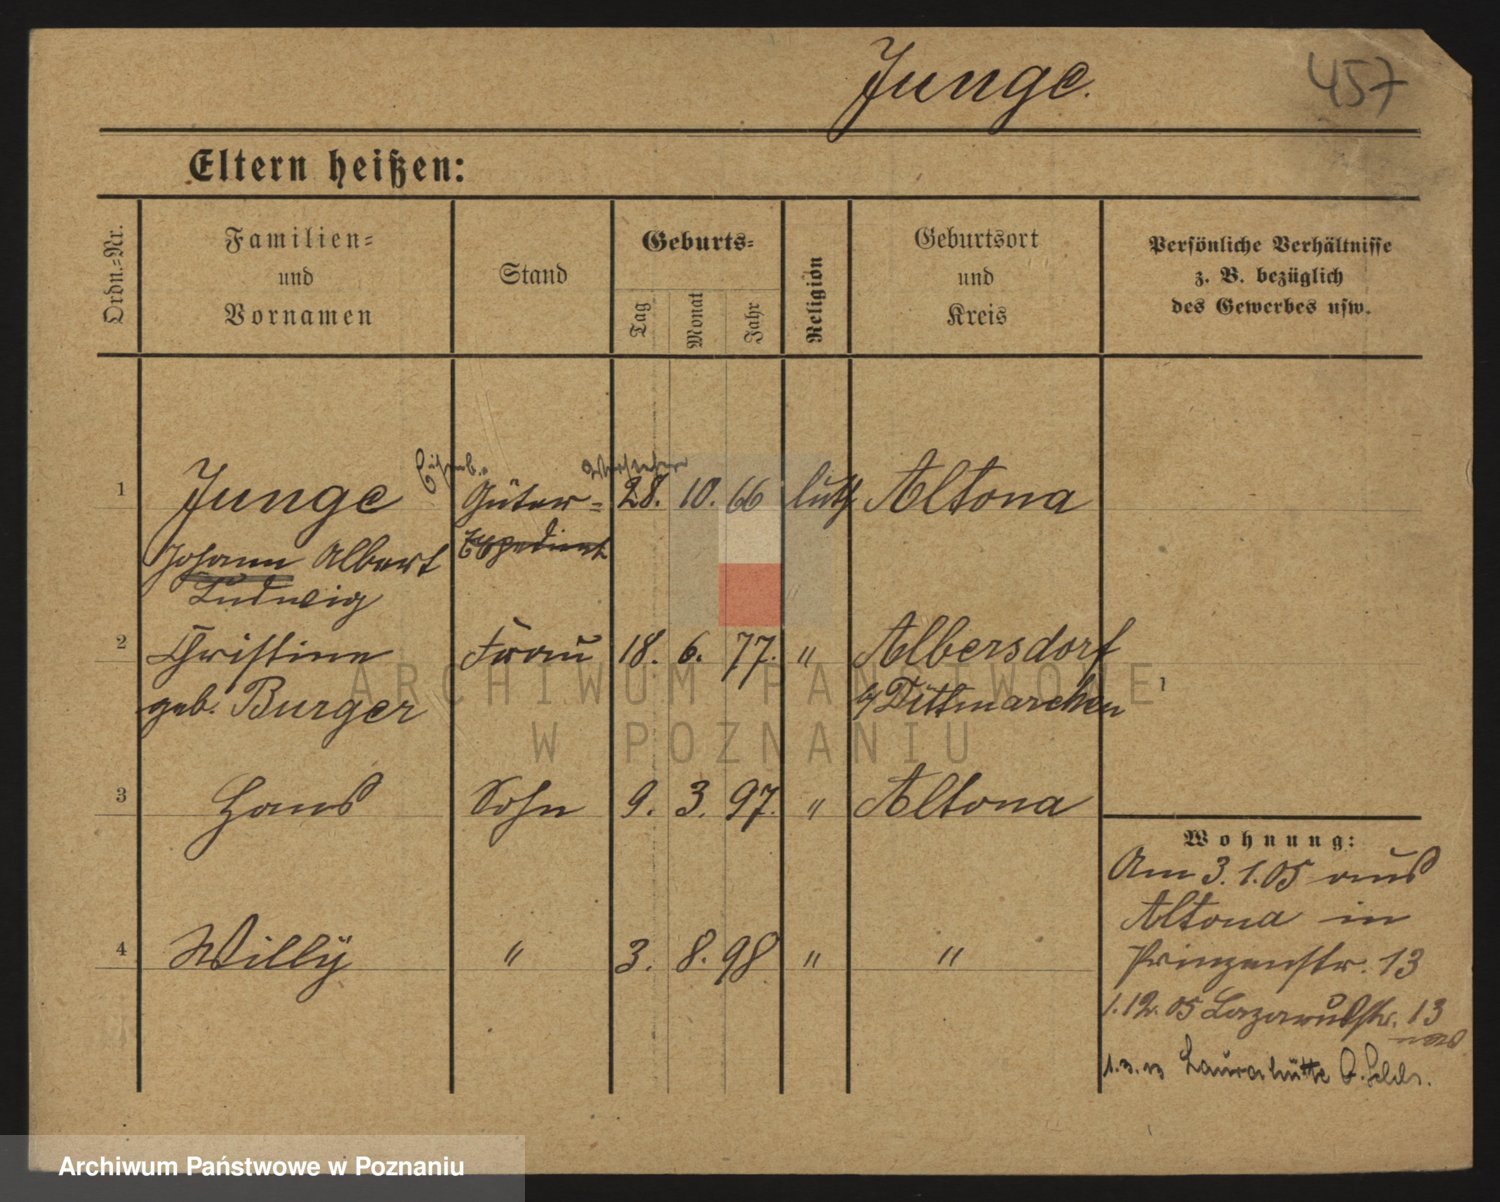 Junge.
457
Eltern heißen:
Ordn.-Nr.
Familien-
und
Vornamen
Stand
Geburts-
Tag
Monat
Jahr
Religion
Geburtsort
und
Kreis
Persönliche Verhältnisse
z. B. bezüglich
des Gewerbes usw.
Eisenb. Vorsteher
1 Junge Güter- 28. 10. 66 luth Altona
Johann Albert Expedient
Ludwig
2 Christine Frau 18. 6. 77. " Albersdorf
geb. Burger Dittmarschen
3 Hans Sohn 9. 3. 97. " Altona
4 Willÿ " 3. 8. 98 " "
Wohnung:
Am 3.1.05 aus
Altona in
Prinzenstr. 13
1.12.05 Lazarusstr. 13
Laurahütte
ARCHIWUM PAŃSTWOWE
W POZNANIU
Archiwum Państwowe w Poznaniu